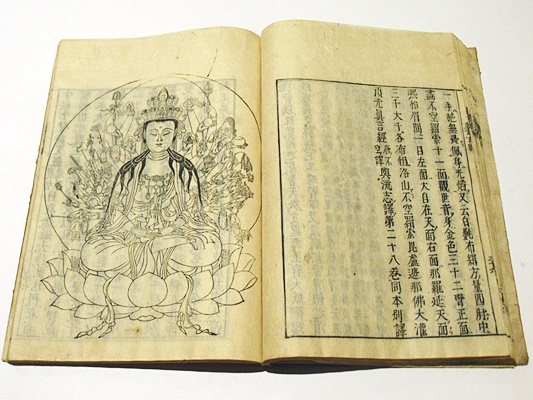 一手花無異佩身光焰又云白㲲布絹方量四肘中
畫不空羂索十一面觀世音身金色三十二臂正面
熙怡眉間一目左面大自在天面右面那羅延天面
布怛洛山不空羂索毘盧遮那佛大灌
頂光眞言經唐不空譯與流志譯第二十八卷同本別譯